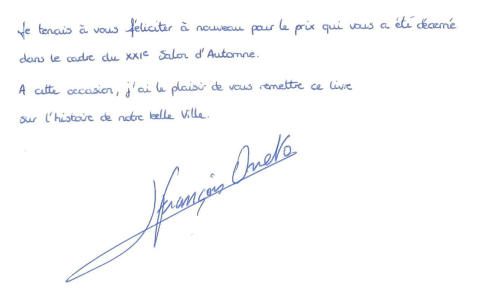 Je tenais à vous féliciter à nouveau pour le prix qui vous a été décerné
dans le cadre du XXIe Salon d'Automne.
A cette occasion, j'ai le plaisir de vous remettre ce livre
sur l'histoire de notre belle Ville.
François